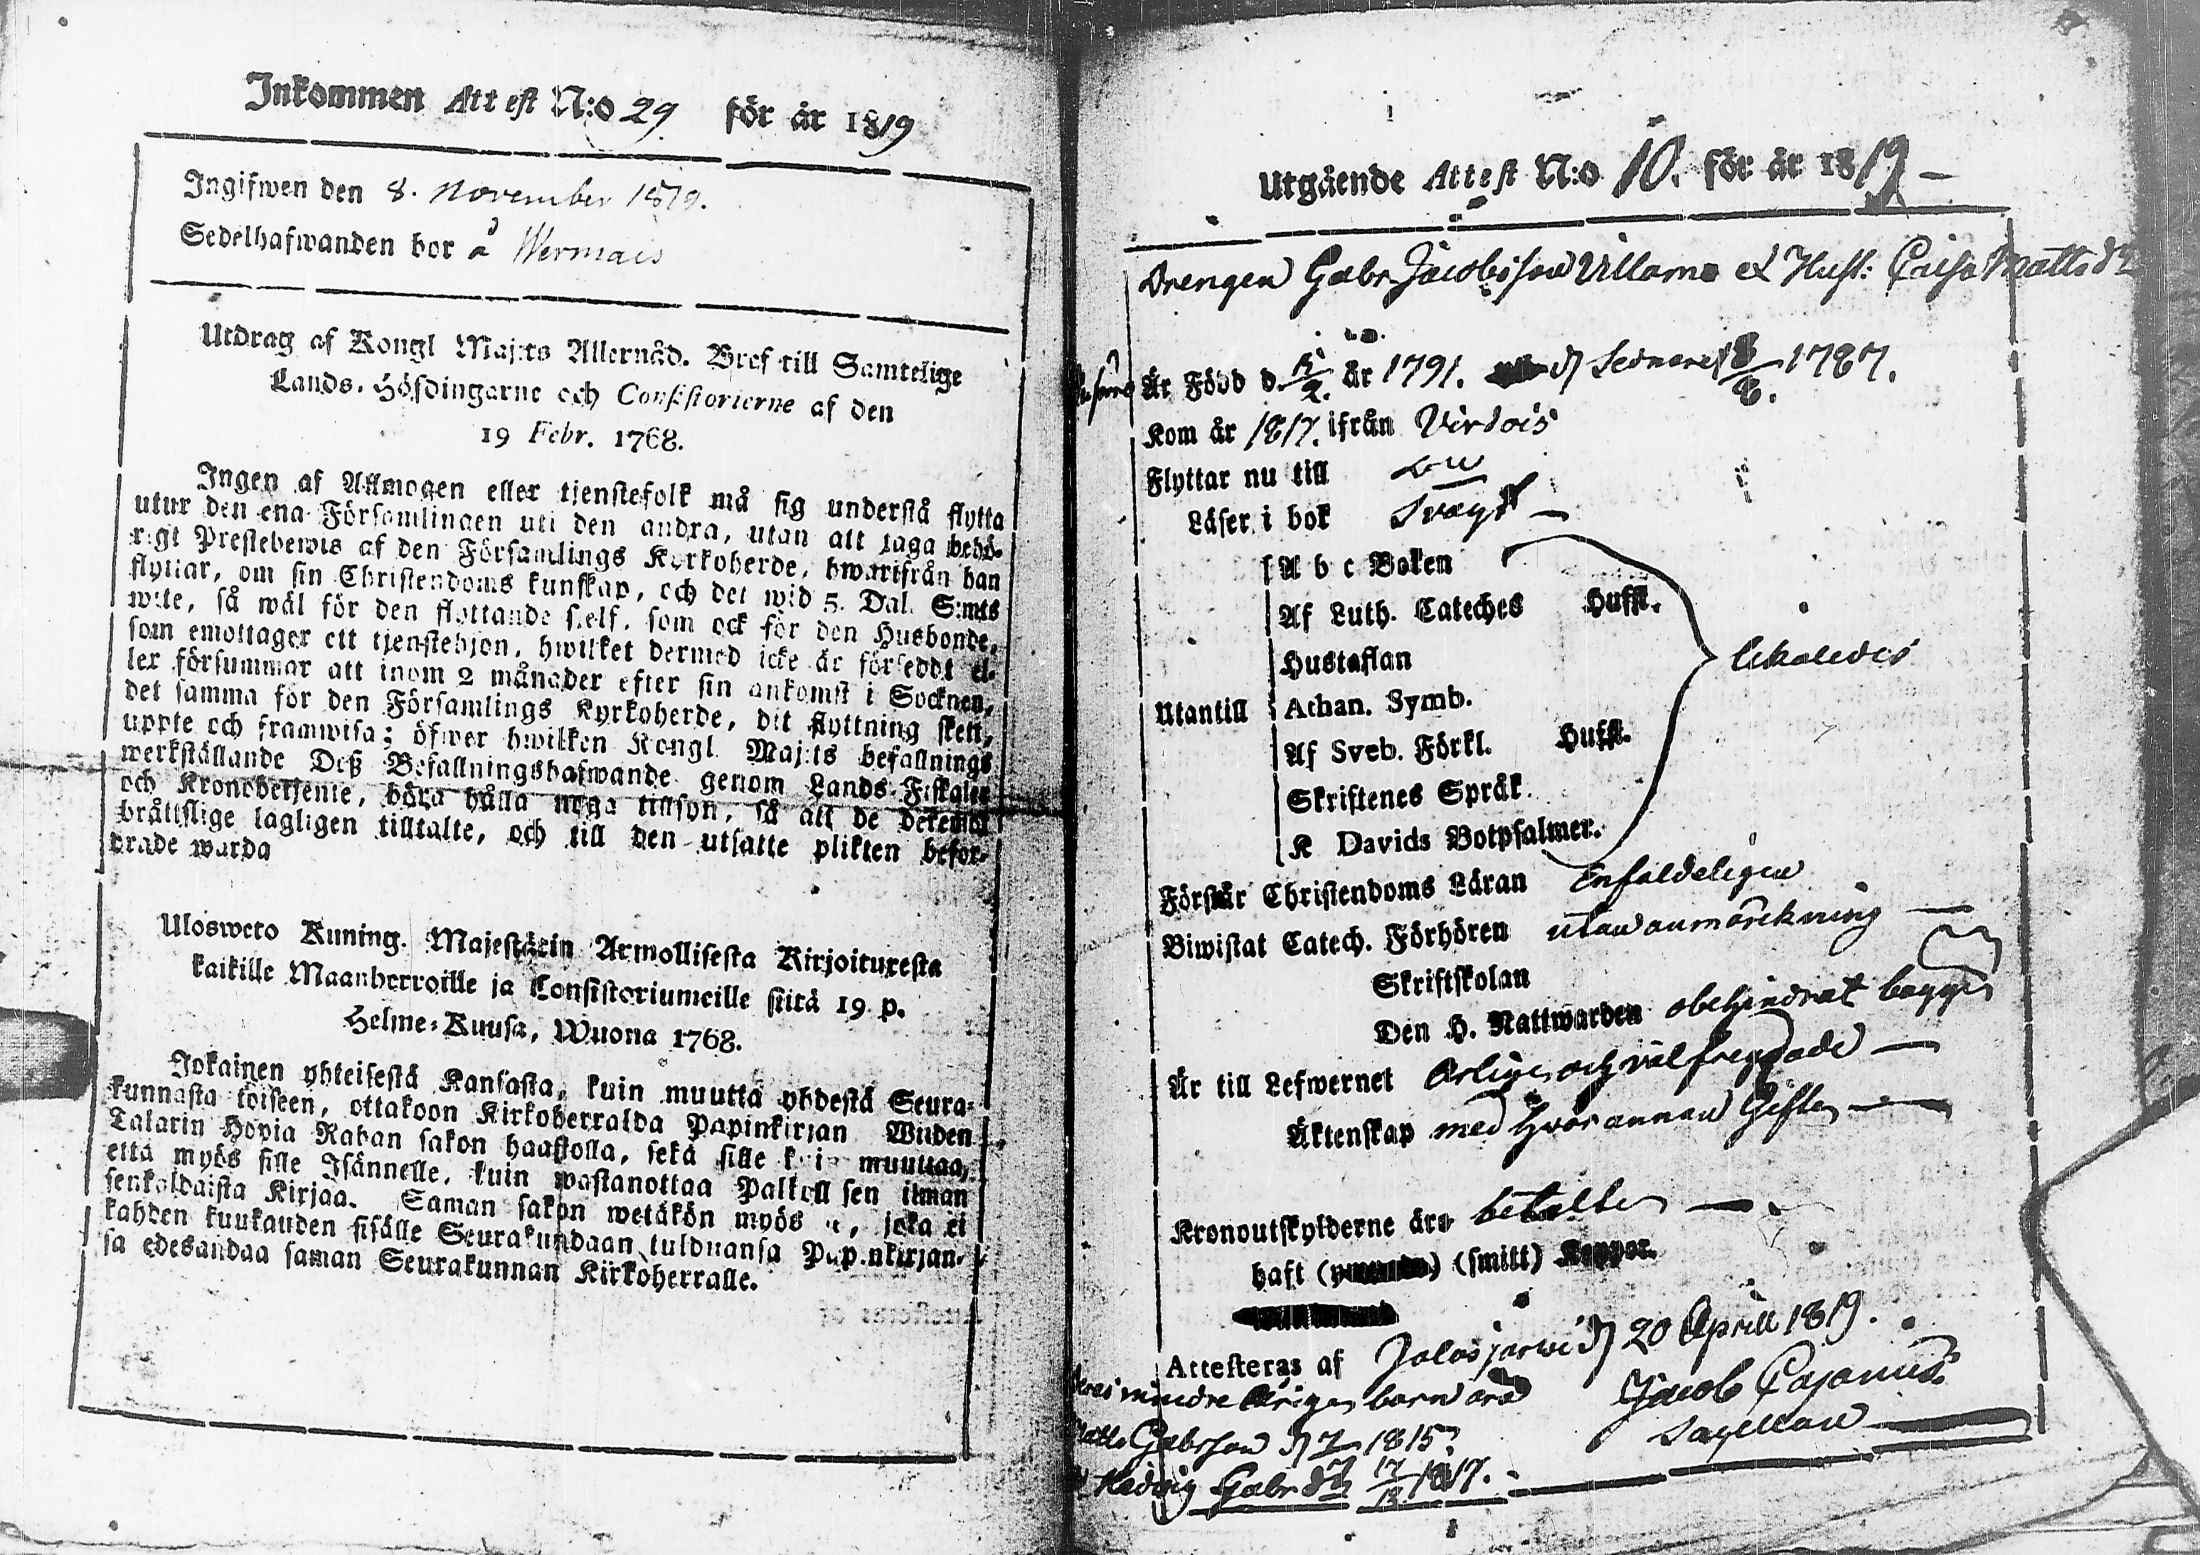 Inkommen Attest N:o 29 för år 1819
Ingifwen den 8. November 1819.
Sedelhafwanden bor å Wermais
Utdrag af Kongl Maj:ts Allernåd. Bref till Samtelige
Lands-Höfdingarne och Consistorierne af den
19 Febr. 1768.
Ingen af Allmogen eller tjenstefolk må sig understå flytta
utur den ena Församlingen uti den andra, utan att taga behö-
rigt Prestebewis af den Församlings Kyrkoherde, hwarifrån han
flyttar, om sin Christendoms kunskap, och det wid 5. Dal. S:mts
wite, så wäl för den flyttande sjelf, som ock för den Husbonde,
som emottager ett tjenstehjon, hwilket dermed icke är försedt el-
ler försummar att inom 2 månader efter sin ankomst i Socknen,
det samma för den Församlings Kyrkoherde, dit flyttning skett,
uppte och framwisa; öfwer hwilken Kongl Maj:ts befallnings
werkställande Deß Befallningshafwande genom Lands-Fiskaler
och Kronobetjente, böra hålla noga tillsyn, så att de
bråttslige lagligen tilltalte, och till den utsatte plikten befor-
drade warda
Ulosweto Kuning. Majestätin Armollisesta Kirjoituxesta
kaikille Maanherroille ja Consistoriumeille siitä 19 p.
Helme-Kuusa, Wuona 1768.
Jokainen yhteisestä Kansasta, kuin muutta yhdestä Seura-
kunnasta toiseen, ottakoon Kirkoherralda Papinkirjan Wiiden
Talarin Hopia Rahan sakon haastolla, sekä sille kuin muuttaa,
että myös sille Isännelle, kuin wastanottaa Palkollisen ilman
senkaldaista Kirjaa. Saman sakon wetäkön myös se, joka ei
kahden kuukauden sisälle Seurakundaan tulduansa Papinkirjan-
sa edesandaa saman Seurakunnan Kirkoherralle.
Utgående Attest N:o 10. för år 1819
Drengen Gabr. Jacobsson Ullamo et Hust: Caisa Mattsdr
Är Född d. år 1791. d Sednare 18/8. 1787.
Kom år 1817. ifrån Virdois
Flyttar nu till
Läser i bok Svagt
A b c Boken
Af Luth. Cateches Hufst.
Hustaflan
likaledes
Utantill
Athan. Symb.
Af Sveb. Förkl. Hufst.
Skriftenes Språk.
K Davids Botpsalmer.
Förstår Christendoms Läran Enfaldeligen
Biwistat Catech. Förhören utan anmärkning
Skriftskolan
Den H. Nattwarden obehindrat bägge
Är till Lefwernet Ärlige och välfregdade
Äktenskap med hvarannan Gifte
Kronoutskylderne äro betalte
haft (smitt) Koppor.
Attesteras af Jalasjärvi d 20 Aprill 1819.
Deras mindre årige barn äro
Jacob Cajanus
Sacellan
Matts Gabrsson d 7/ 1815.
Hedvig Gabrdr 17/12 1817.